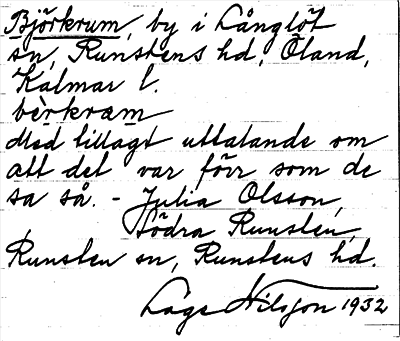 Björkrum, by i Långlöt
sn, Runstens hd, Öland,
Kalmar l.
bèrkræm
Med tillagt uttalande om
att det var förr som de
sa så. - Julia Olsson,
Södra Runsten,
Runsten sn, Runstens hd.
Lage Nilsson 1932